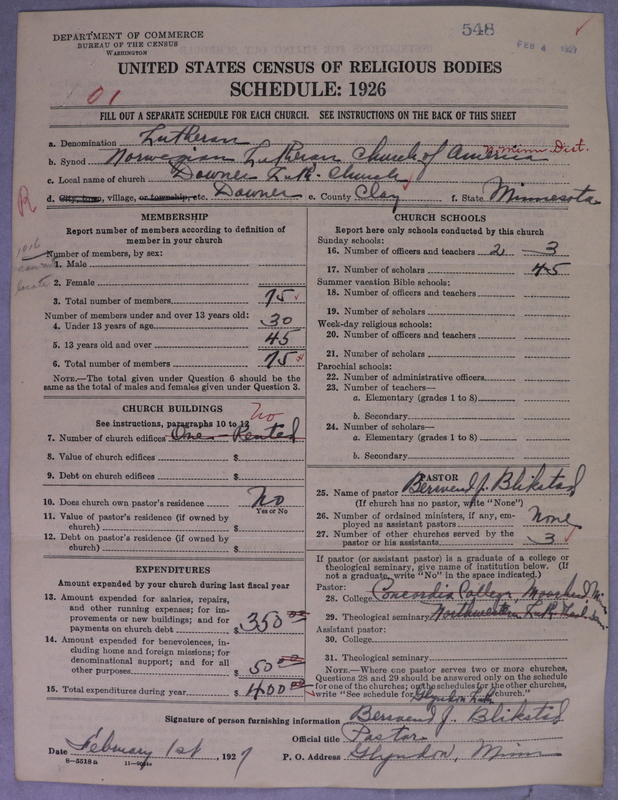 DEPARTMENT OF COMMERCE
BUREAU OF THE CENSUS
WASHINGTON
548
FEB 4 1927
UNITED STATES CENSUS OF RELIGIOUS BODIES
SCHEDULE: 1926
01
FILL OUT A SEPARATE SCHEDULE FOR EACH CHURCH. SEE INSTRUCTIONS ON THE BACK OF THIS SHEET
a. Denomination Lutheran
b. Synod Norwegian Lutheran Church of America N. Minn Dist.
c. Local name of church Downer Luth. Church
d. City, town, village, or township, etc. Downer e. County Clay f. State Minnesota
R
MEMBERSHIP
Report number of members according to definition of
member in your church
Number of members, by sex:
1. Male
2. Female
3. Total number of members 75
Number of members under and over 13 years old:
4. Under 13 years of age 30
5. 13 years old and over 45
6. Total number of members 75
NOTE.—The total given under Question 6 should be the
same as the total of males and females given under Question 3.
CHURCH BUILDINGS
See instructions, paragraphs 10 to 12
no
7. Number of church edifices One - Rented
8. Value of church edifices $
9. Debt on church edifices $
10. Does church own pastor's residence No
Yes or No
11. Value of pastor's residence (if owned by
church) $
12. Debt on pastor's residence (if owned by
church) $
EXPENDITURES
Amount expended by your church during last fiscal year
13. Amount expended for salaries, repairs,
and other running expenses; for im-
provements or new buildings; and for
payments on church debt $350.00
14. Amount expended for benevolences, in-
cluding home and foreign missions; for
denominational support; and for all
other purposes $50.00
15. Total expenditures during year $400.00
CHURCH SCHOOLS
Report here only schools conducted by this church
Sunday schools:
16. Number of officers and teachers 2 3
17. Number of scholars 45
Summer vacation Bible schools:
18. Number of officers and teachers
19. Number of scholars
Week-day religious schools:
20. Number of officers and teachers
21. Number of scholars
Parochial schools:
22. Number of administrative officers
23. Number of teachers—
a. Elementary (grades 1 to 8)
b. Secondary
24. Number of scholars—
a. Elementary (grades 1 to 8)
b. Secondary
PASTOR
25. Name of pastor Berwend J. Blikstad
(If church has no pastor, write "None")
26. Number of ordained ministers, if any, em-
ployed as assistant pastors None
27. Number of other churches served by the
pastor or his assistants 3
If pastor (or assistant pastor) is a graduate of a college or
theological seminary, give name of institution below. (If
not a graduate, write "No" in the space indicated.)
Pastor:
28. College Concordia College, Moorhead,
29. Theological seminary Northwestern
Assistant pastor:
30. College
31. Theological seminary
NOTE.—Where one pastor serves two or more churches,
Questions 28 and 29 should be answered only on the schedule
for one of the churches; on the schedules for the other churches,
write "See schedule for Glyndon church."
Signature of person furnishing information Berwend J. Blikstad
Official title Pastor
Date February 1st, 1927 P. O. Address Glyndon, Minn
8-5518a